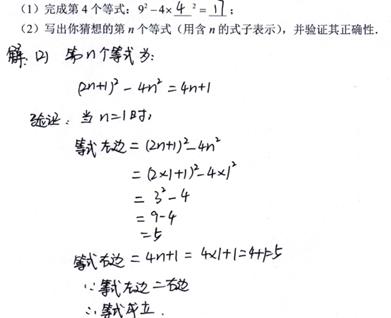 (1) 完成第 4 个等式: 9²-4×4²=17;
(2) 写出你猜想的第 n 个等式 (用含 n 的式子表示), 并验证其正确性.
解: (2) 第n个等式为:
(2n+1)²-4n²=4n+1
验证: 当n=1时,
等式左边=(2n+1)²-4n²
=(2×1+1)²-4×1²
=3²-4
=9-4
=5
等式右边=4n+1=4×1+1=4+1=5
∵等式左边=右边
∴等式成立.